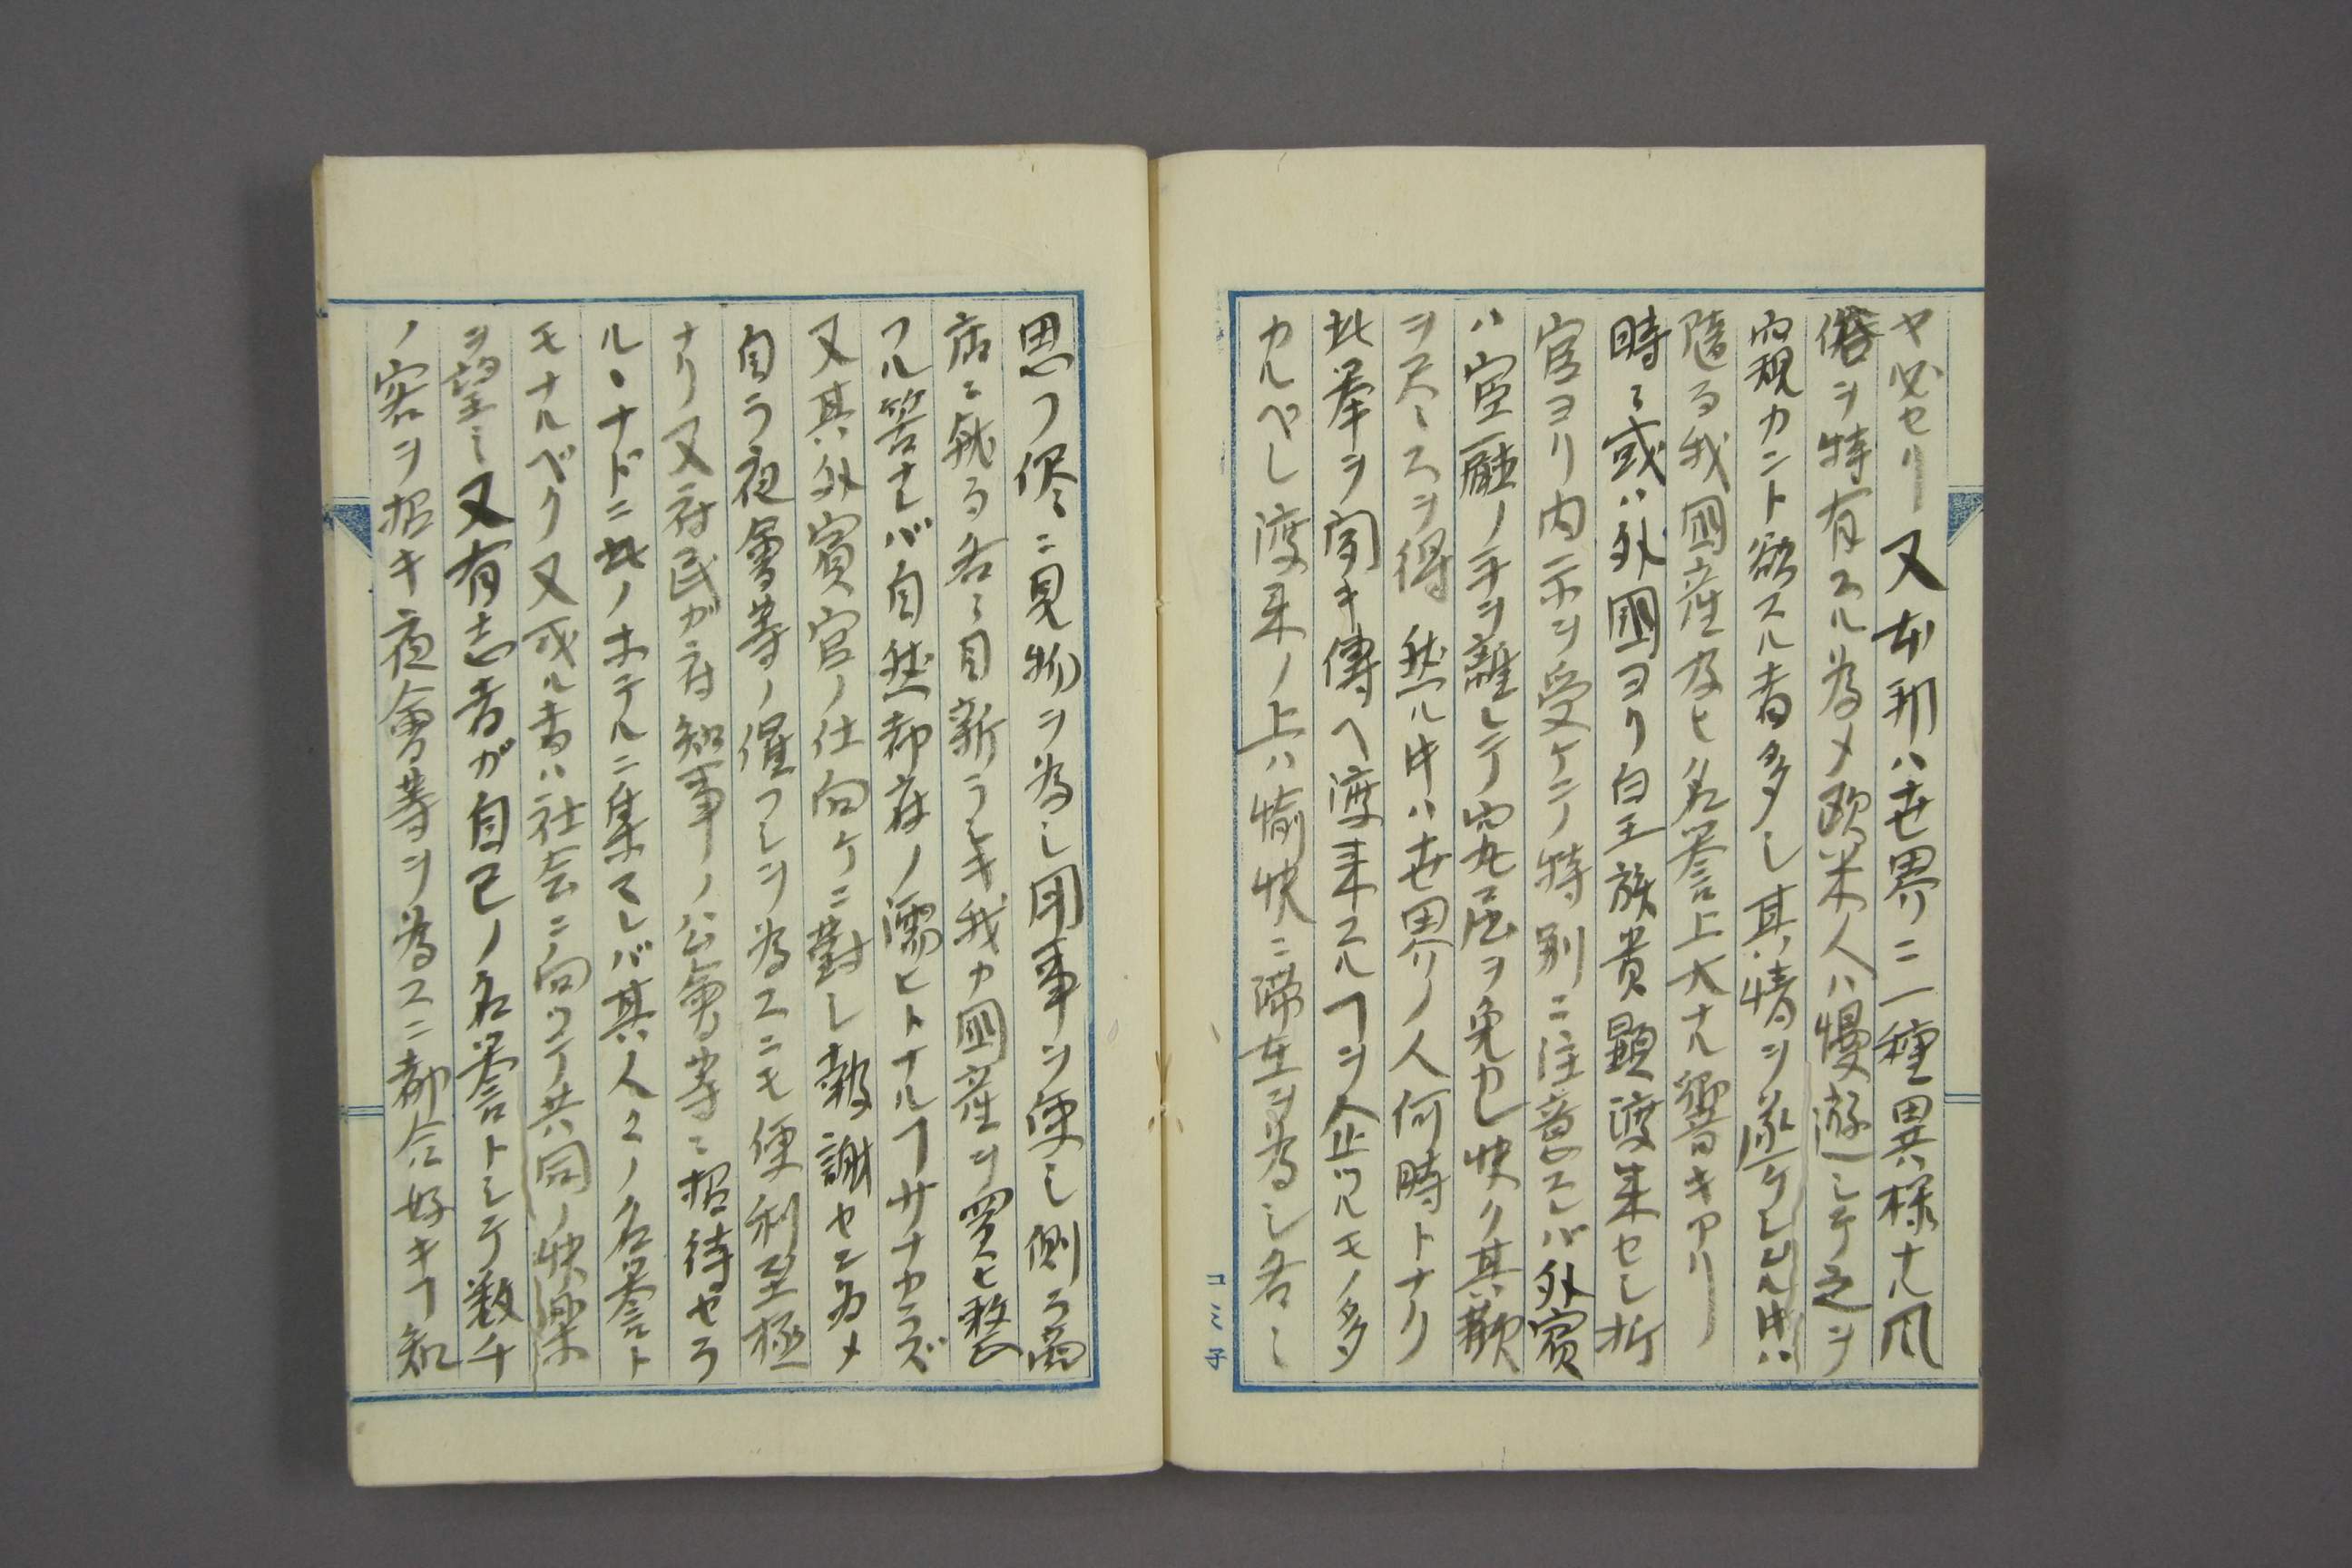 ヤ必セリ又本邦ハ世界ニ一種異様ナル風
俗ヲ特有スル為メ欧米人ハ慢遊シテ之ヲ
窺カント欲スル者多シ其情ヲ遂ケシムル時ハ
随る我國産及ヒ名誉上大ナル響キアリ
時ニ或ハ外國ヨリ皇族貴顕渡来セシ折
官ヨリ内示ヲ受ケテ特別ニ注意スレバ外賓
ハ官廰ノ手ヲ離レテ窮屈ヲ免カレ快ク其歓
ヲ尽スヲ得然ル時ハ世界ノ人何時トナク
此挙ヲ聞キ傳ヘ渡来スルヿヲ企ツルモノ多
カルベし渡来ノ上ハ愉快ニ滞在ヲ為し各々
思フ侭ニ見物ヲ為し用事ヲ便し側ら商
店ニ就る各々目新ラシキ我カ國産ヲ買ヒ整
フル筈ナレバ自然都府ノ濡ヒトナルヿサナカラズ
又其外賓官ノ仕向ケニ對し報謝センタメ
自ラ夜會等ノ催フシヲ為スニモ便利至極
ナリ又府民ガ府知事ノ公會等ニ招待セラ
ルヽナドニ此ノホテルニ集マレバ其人々ノ名誉ト
モナルベク又或ル者ハ社会ニ向ツテ共同ノ快樂
ヲ望ミ又有志者ガ自己ノ名誉トシテ数千
ノ客ヲ招キ夜會等ヲ為スニ都合好キヿ知
コミ子